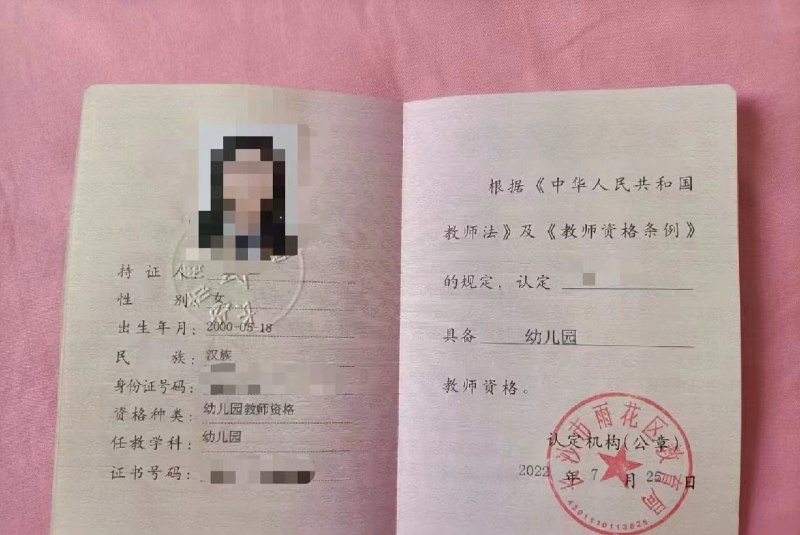 持证人:
性别: 女
出生年月: 2000-05-18
民族: 汉族
身份证号码:
资格种类: 幼儿园教师资格
任教学科: 幼儿园
证书号码:
根据《中华人民共和国
教师法》及《教师资格条例》
的规定, 认定
具备 幼儿园
教师资格。
长沙市雨花区教育局
认定机构(公章)
2022 年 7 月 25 日
4301110113825